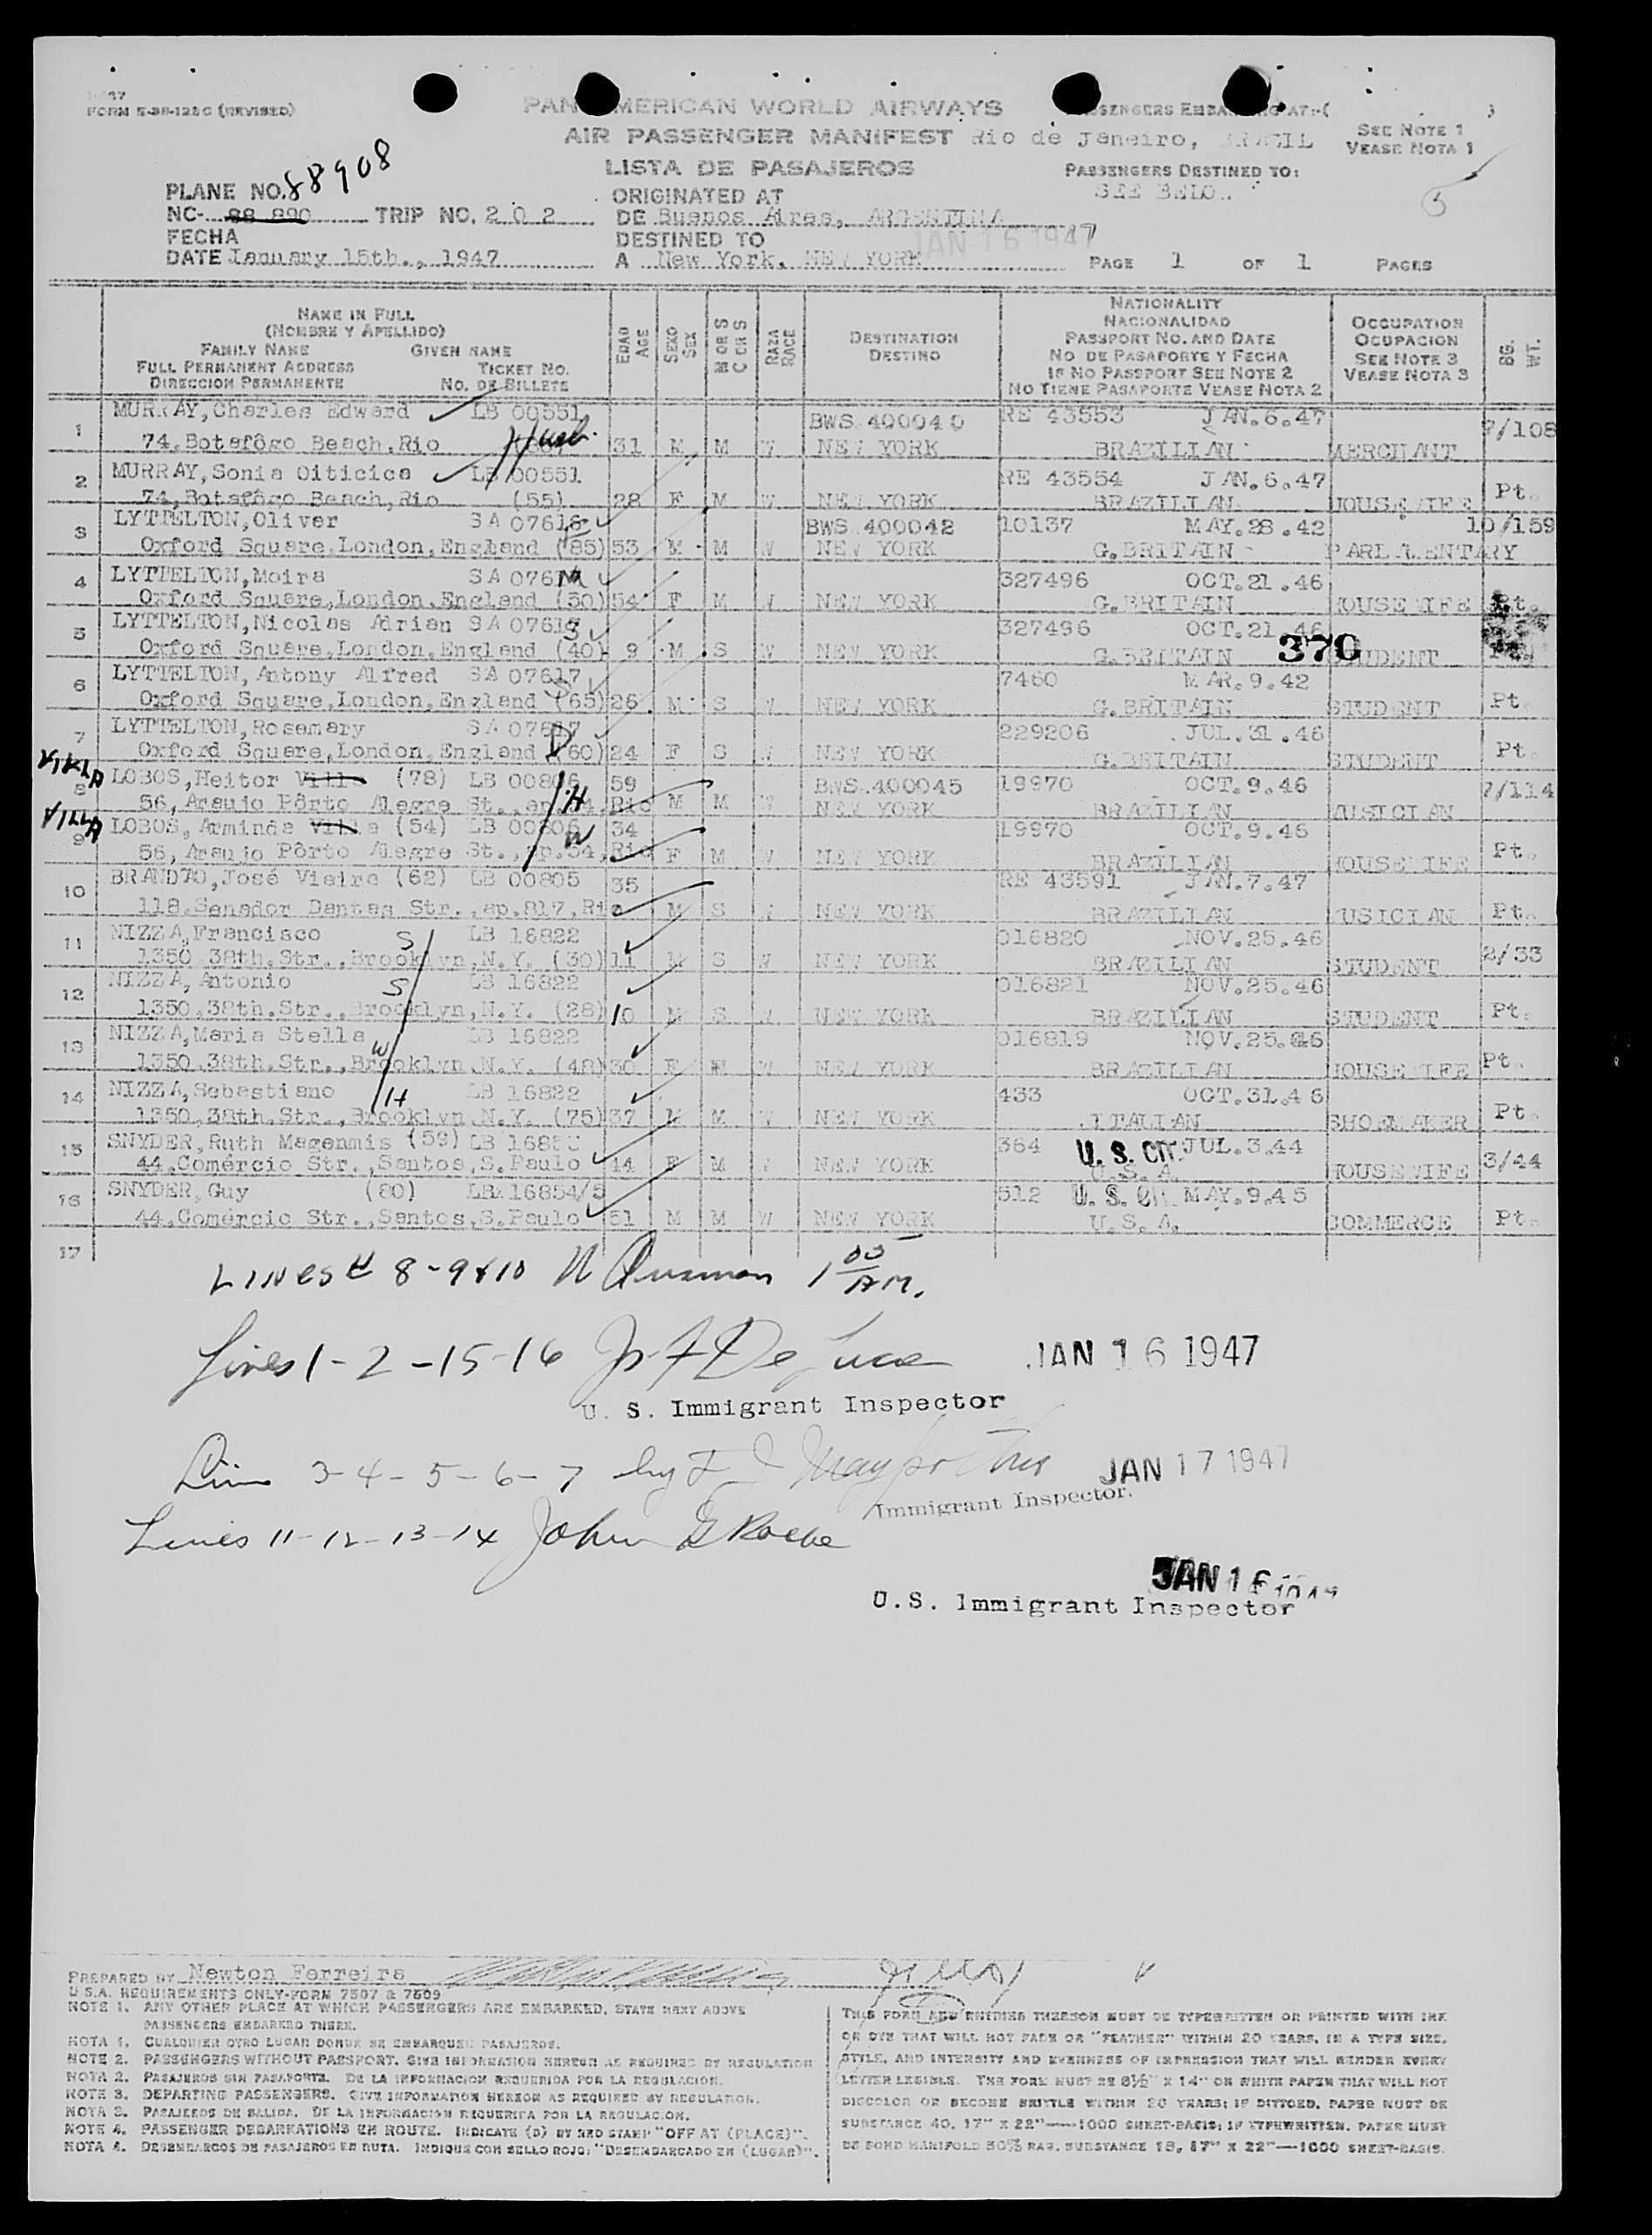 FORM 5-38-128C (REVISED)
PAN AMERICAN WORLD AIRWAYS
AIR PASSENGER MANIFEST
LISTA DE PASAJEROS
PASSENGERS EMBARKING AT:-( )
Rio de Janeiro, BRAZIL
SEE NOTE 1
VEASE NOTA 1
PASSENGERS DESTINED TO:
SEE BELOW
PLANE NO. 88908
NC- 88 890 TRIP NO. 202
FECHA
DATE January 15th., 1947
ORIGINATED AT
DE Buenos Aires, ARGENTINA
DESTINED TO
A New York, NEW YORK
JAN 16 1947
PAGE 1 OF 1 PAGES
NAME IN FULL
(NOMBRE Y APELLIDO)
FAMILY NAME GIVEN NAME
FULL PERMANENT ADDRESS TICKET NO.
DIRECCION PERMANENTE NO. DE BILLETE
EDAD AGE
SEXO SEX
M OR S C OR S
RAZA RACE
DESTINATION
DESTINO
NATIONALITY
NACIONALIDAD
PASSPORT NO. AND DATE
NO DE PASAPORTE Y FECHA
IF NO PASSPORT SEE NOTE 2
NO TIENE PASAPORTE VEASE NOTA 2
OCCUPATION
OCUPACION
SEE NOTE 3
VEASE NOTA 3
BG. WT.
1 MURRAY, Charles Edward LB 00551 BWS.400040 RE 43553 JAN.6.47 7/108
74, Botafôgo Beach, Rio 31 M M W NEW YORK BRAZILIAN MERCHANT
2 MURRAY, Sonia Oiticica LB 00551 RE 43554 JAN.6.47 Pt.
74, Botafôgo Beach, Rio (55) 28 F M W NEW YORK BRAZILIAN HOUSEWIFE
3 LYTTELTON, Oliver SA 07616 BWS.400042 10137 MAY.28.42 10/159
Oxford Square, London, England (85) 53 M M W NEW YORK G.BRITAIN PARLAMENTARY
4 LYTTELTON, Moira SA 0761 327496 OCT.21.46 Pt.
Oxford Square, London, England (30) 54 F M W NEW YORK G.BRITAIN HOUSEWIFE
5 LYTTELTON, Nicolas Adrian SA 07617 327496 OCT.21.46
Oxford Square, London, England (40) 9 M S W NEW YORK G.BRITAIN 370 STUDENT
6 LYTTELTON, Antony Alfred SA 07617 7460 MAR.9.42 Pt.
Oxford Square, London, England (65) 26 M S W NEW YORK G.BRITAIN STUDENT
7 LYTTELTON, Rosemary SA 07617 229206 JUL.31.46 Pt.
Oxford Square, London, England (60) 24 F S W NEW YORK G.BRITAIN STUDENT
VILLA 8 LOBOS, Heitor Villa (78) LB 00806 59 BWS.400045 19970 OCT.9.46 7/114
56, Araujo Pôrto Alegre St., ap.54, Rio H M M W NEW YORK BRAZILIAN MUSICIAN
VILLA 9 LOBOS, Arminda Villa (54) LB 00806 34 19970 OCT.9.46 Pt.
56, Araujo Pôrto Alegre St., ap.54, Rio W F M W NEW YORK BRAZILIAN HOUSEWIFE
10 BRANDÃO, José Vieira (62) LB 00805 35 RE 43591 JAN.7.47 Pt.
118, Senador Dantas Str., ap.817, Rio M S W NEW YORK BRAZILIAN MUSICIAN
11 NIZZA, Francisco S LB 16822 016820 NOV.25.46 2/33
1350, 38th. Str., Brooklyn, N.Y. (30) 11 M S W NEW YORK BRAZILIAN STUDENT
12 NIZZA, Antonio S LB 16822 016821 NOV.25.46 Pt.
1350, 38th. Str., Brooklyn, N.Y. (28) 10 M S W NEW YORK BRAZILIAN STUDENT
13 NIZZA, Maria Stella W LB 16822 016819 NOV.25.46 Pt.
1350, 38th. Str., Brooklyn, N.Y. (48) 30 F M W NEW YORK BRAZILIAN HOUSEWIFE
14 NIZZA, Sebastiano H LB 16822 433 OCT.31.46 Pt.
1350, 38th. Str., Brooklyn, N.Y. (75) 37 M M W NEW YORK ITALIAN SHOEMAKER
15 SNYDER, Ruth Magenmis (59) LB 1685 364 U.S. CIT. JUL.3.44 3/44
44, Comércio Str., Santos, S.Paulo 44 F M W NEW YORK U.S.A. HOUSEWIFE
16 SNYDER, Guy (80) LB 16854/5 512 U.S. CIT. MAY.9.45 Pt.
44, Comércio Str., Santos, S.Paulo 51 M M W NEW YORK U.S.A. COMMERCE
17
LINES # 8-9&10 1 00 AM.
Lines 1-2-15-16 De Luca JAN 16 1947
U. S. Immigrant Inspector
Line 3-4-5-6-7 by JAN 17 1947
Immigrant Inspector.
Lines 11-12-13-14 John
JAN 16 1947
U.S. Immigrant Inspector
PREPARED BY Newton Ferreira
U.S.A. REQUIREMENTS ONLY-FORM 7507 & 7509
NOTE 1. ANY OTHER PLACE AT WHICH PASSENGERS ARE EMBARKED, STATE NEXT ABOVE
PASSENGERS EMBARKED THERE.
NOTA 1. CUALQUIER OTRO LUGAR DONDE SE EMBARQUEN PASAJEROS.
NOTE 2. PASSENGERS WITHOUT PASSPORT. GIVE INFORMATION HEREON AS REQUIRED BY REGULATION
NOTA 2. PASAJEROS SIN PASAPORTE. DE LA INFORMACION REQUERIDA POR LA REGULACION.
NOTE 3. DEPARTING PASSENGERS. GIVE INFORMATION HEREON AS REQUIRED BY REGULATION.
NOTA 3. PASAJEROS DE SALIDA. DE LA INFORMACION REQUERIDA POR LA REGULACION.
NOTE 4. PASSENGER DEBARKATIONS EN ROUTE. INDICATE (D) BY RED STAMP "OFF AT (PLACE)".
NOTA 4. DESEMBARCOS DE PASAJEROS EN RUTA. INDIQUE CON SELLO ROJO: "DESEMBARCADO EN (LUGAR)".
THIS FORM AND ENTRIES THEREON MUST BE TYPEWRITTEN OR PRINTED WITH INK
OR DYE THAT WILL NOT FADE OR "FEATHER" WITHIN 20 YEARS, IN A TYPE SIZE,
STYLE, AND INTENSITY AND EVENNESS OF IMPRESSION THAT WILL RENDER EVERY
LETTER LEGIBLE. THE FORM MUST BE 8½" X 14" ON WHITE PAPER THAT WILL NOT
DISCOLOR OR BECOME BRITTLE WITHIN 20 YEARS; IF DITTOED, PAPER MUST BE
SUBSTANCE 40, 17" X 22"—1000 SHEET-BASIS; IF TYPEWRITTEN, PAPER MUST
BE BOND MANIFOLD 50% RAG, SUBSTANCE 18, 17" X 22"—1000 SHEET-BASIS.